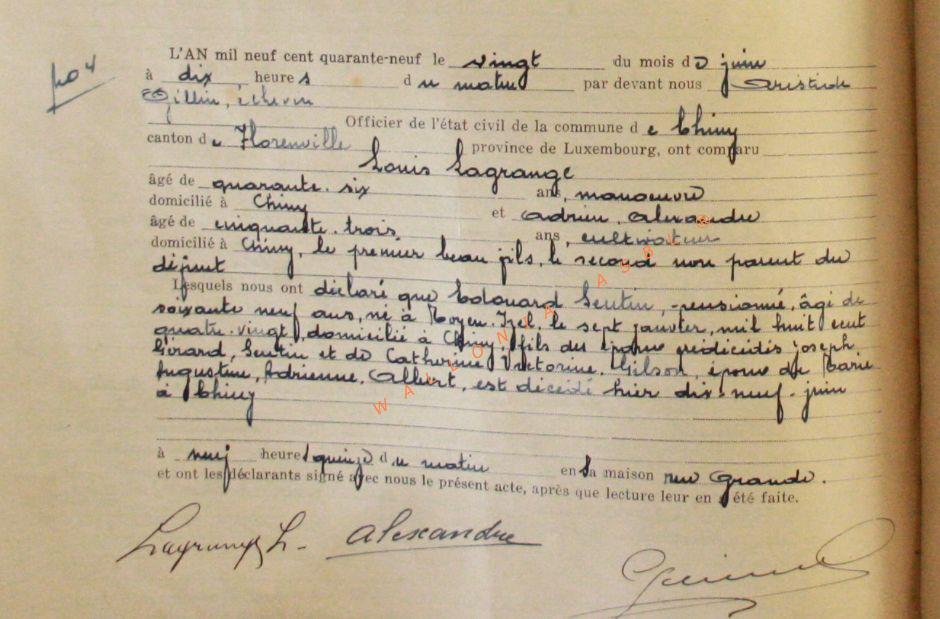 No 4
L'AN mil neuf cent quarante-neuf le vingt du mois de juin
à dix heures du matin par devant nous Aristide
Gillin, échevin
Officier de l'état civil de la commune de Chiny
canton de Florenville province de Luxembourg, ont comparu
Louis Lagrange
âgé de quarante-six ans, manoeuvre
domicilié à Chiny et Adrien Alexandre
âgé de cinquante-trois ans, cultivateur
domicilié à Chiny, le premier beau fils, le second non parent du
défunt
Lesquels nous ont déclaré que Edouard Sentin, pensionné, âgé de
soixante neuf ans, né à Moyen-Izel, le sept janvier, mil huit cent
quatre-vingt, domicilié à Chiny, fils des époux prédécédés Joseph
Girard, Sentin et de Catherine Victorine Gilson, époux de Marie
Augustine, Adrienne Albert, est décédé hier dix-neuf juin
à Chiny
à neuf heures quinze du matin en sa maison rue Grande.
et ont les déclarants signé avec nous le présent acte, après que lecture leur en a été faite.
Lagrange L. Alexandre
WALLONIA ASBL ©